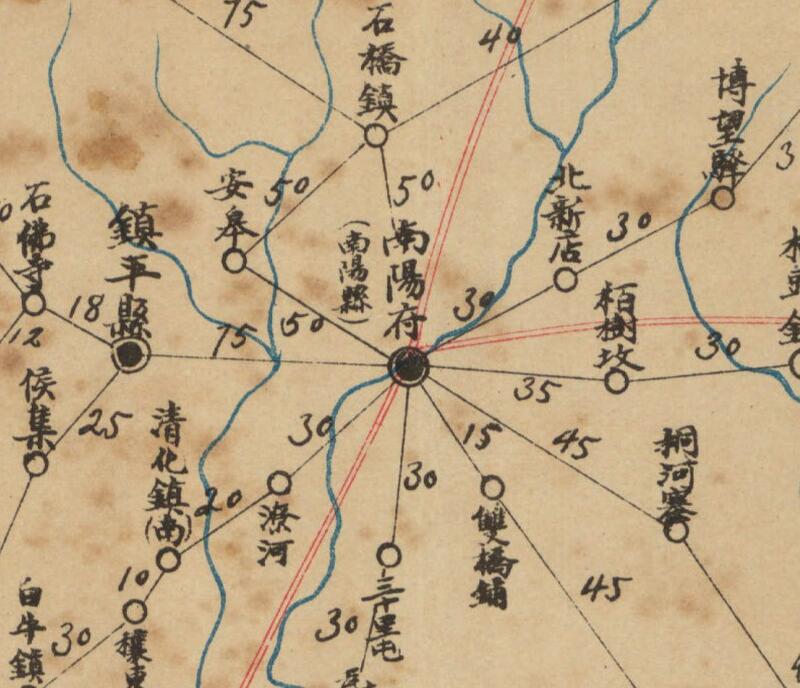 75
石橋鎮
40
博望驛
安皋
50
50
北新店
30
石佛寺
鎮平縣
南陽府
(南陽縣)
18
12
75
50
30
栢樹坟
30
35
侯集
25
清化鎮(南)
20
30
潦河
30
15
45
桐河寨
雙橋鋪
45
三十里屯
30
10
穰東
白牛鎮
30